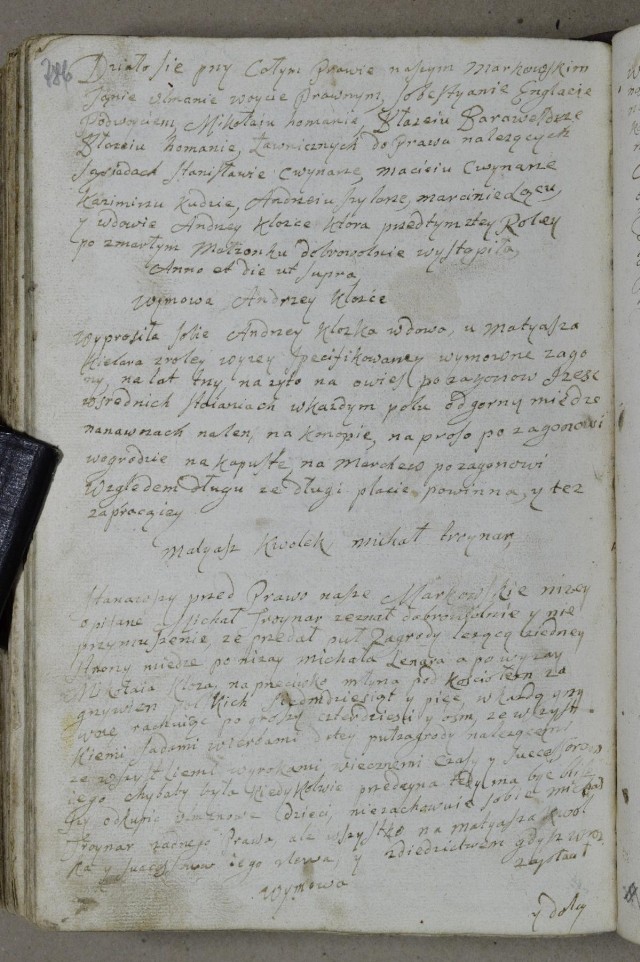 786
Działo się przy Całym Prawie naszym Markowskim
Janie Ulmanie woycie Prawnym, Sobestyanie Englacie
Podwoyciem, Mikołaiu homanie, Błazeiu
Błazeiu homanie, Ławnicznych do Prawa nalezących
Sąsiedach Stanisławie Cwynarze, Macieiu Cwynarze
Kazimirzu Kudzie, Andrzeiu Szylarze, marcinie
y wdowie Andrzey Klozce ktora przedtym ztey Roley
po zmarłym Małzonku dobrowolnie wystąpiła,
Anno et die ut supra
Wymowa Andrzey Klozce
Wyprosiła sobie Andrzey Klozka wdowa, u Matyasza
Kielara zroley wyzey specifikowaney wymowne zago
ny, na lat trzy, na zyto na owies po zagonow
wsrednich staianiach wkazdym polu od gorny miedze
nanawzach na len, na konopie, na proso po zagonowi
wogrodzie na kapustę, na Marchew po zagonowi
Względem długu ze długi płacic powinna, y tez
zapracązey
Matyasz Kwolek, michał troynar,
Stanąwszy przed Prawo nasze Markowskie nizey
opisane Michał Troynar zeznał dobrowolnie y nie
przymuszenie, ze przedał puł Zagrody lezącą ziedney
strony miedze po nizay michała Lenara a po wyzay
Mikołaia Kloza, naprzeciwko młyna pod kosciołem za
grzywien polskich siedmdziesiąt y pięc, w kazdą grzy
wne rachuiąc po groszy czterdziesci y ośm, ze wszyst
kiemi sadami wierbami do tey pułzagrody nalezącemi
ze wszystkiemi wyrokami wiecznemi czasy y Succesorom
iego chybaby była kiedykolwie przedayna tedy ma byc
odkupic dzieci, niezachowuie sobie michał
Troynar zadnego Prawa, ale wszystko na matyasza Kwol
ka y sucessorow iego zlewa, y zdiedzictwem gdysz
zapłaci
Wymowa
y doley